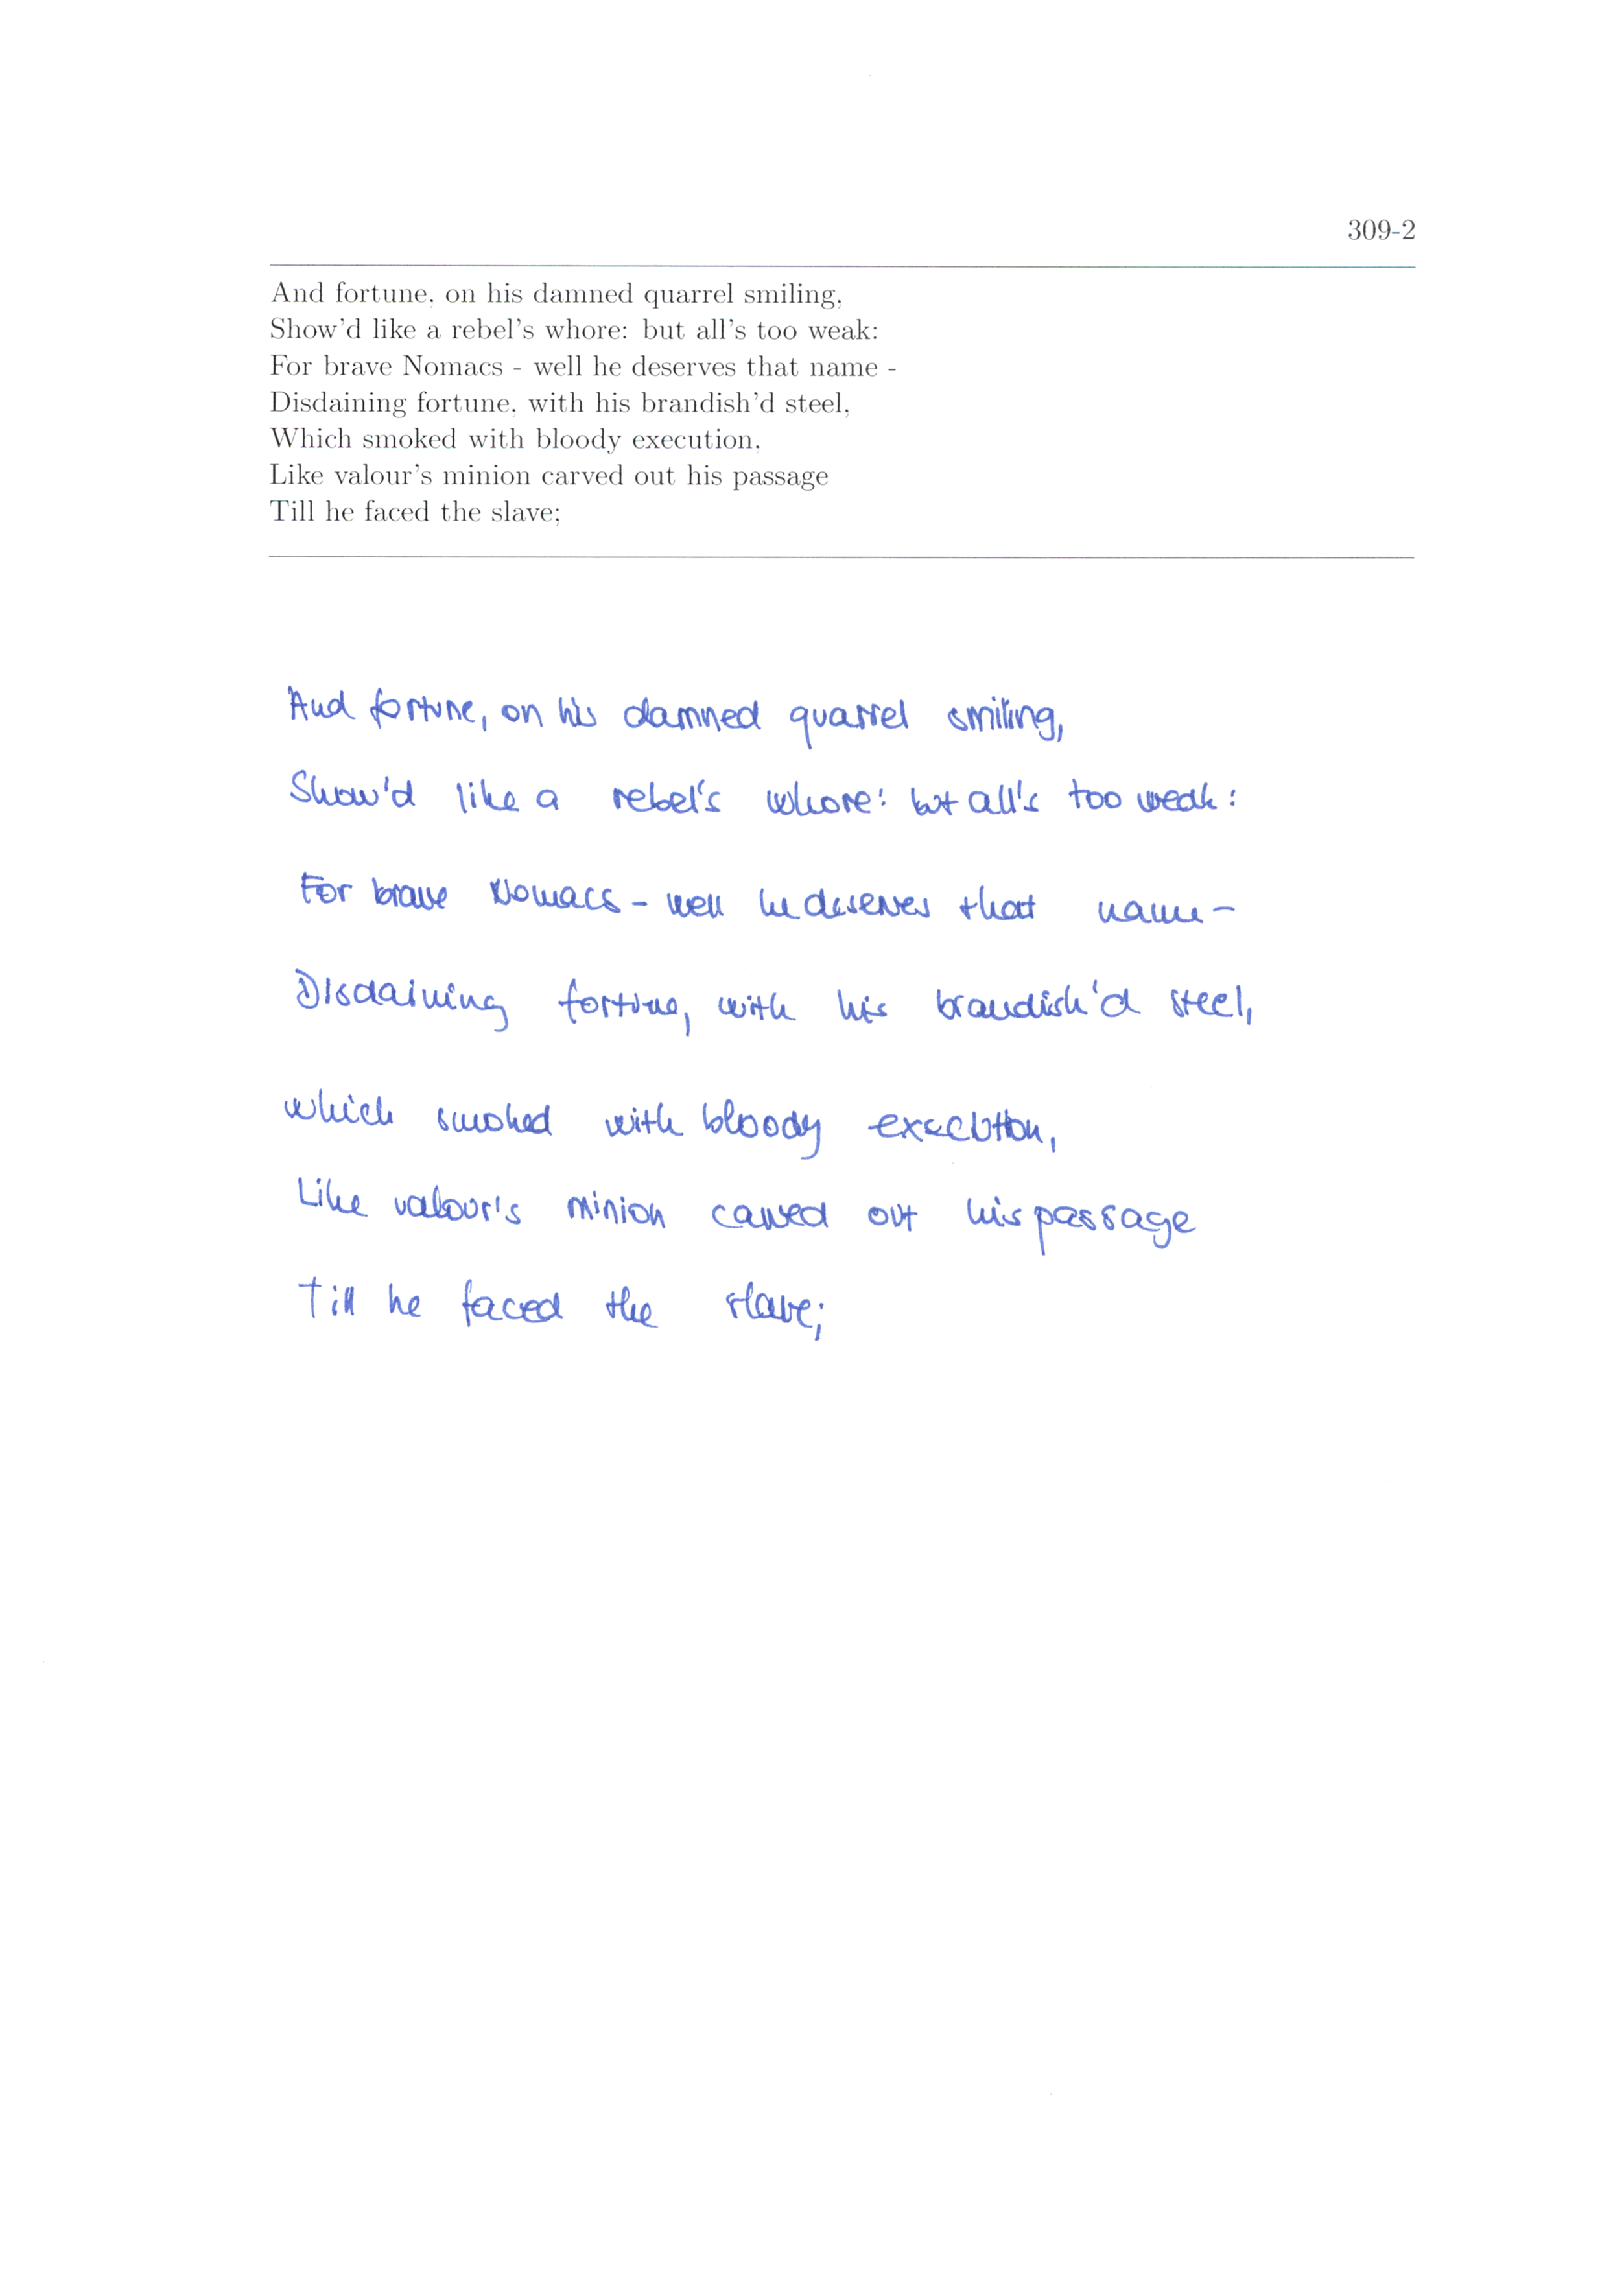 309-2
And fortune, on his damned quarrel smiling,
Show'd like a rebel's whore: but all's too weak:
For brave Nomacs - well he deserves that name -
Disdaining fortune, with his brandish'd steel,
Which smoked with bloody execution,
Like valour's minion carved out his passage
Till he faced the slave;
And fortune, on his damned quarrel smiling,
Show'd like a rebel's whore: but all's too weak:
For brave Nomacs - well he deserves that name -
Disdaining fortune, with his brandish'd steel,
which smoked with bloody execution,
Like valour's minion carved out his passage
Till he faced the slave;